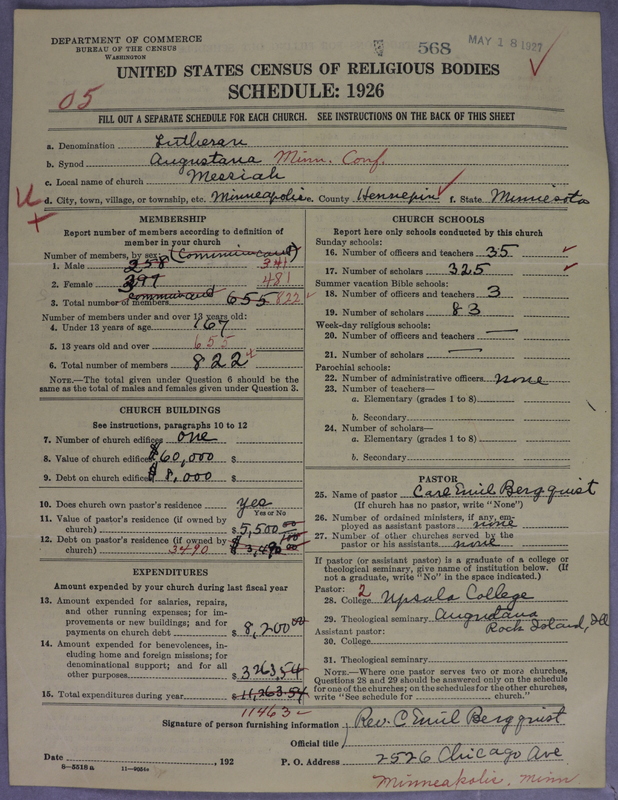 DEPARTMENT OF COMMERCE
BUREAU OF THE CENSUS
WASHINGTON
568
MAY 18 1927
UNITED STATES CENSUS OF RELIGIOUS BODIES
SCHEDULE: 1926
05
FILL OUT A SEPARATE SCHEDULE FOR EACH CHURCH. SEE INSTRUCTIONS ON THE BACK OF THIS SHEET
a. Denomination Lutheran
b. Synod Augustana Minn. Conf.
c. Local name of church Messiah
d. City, town, village, or township, etc. Minneapolis e. County Hennepin f. State Minnesota
MEMBERSHIP
Report number of members according to definition of
member in your church
Number of members, by sex: (Communicant)
1. Male 258 341
2. Female 397 481
3. Total number of members communicant 655 822
Number of members under and over 13 years old:
4. Under 13 years of age 167
5. 13 years old and over 655
6. Total number of members 822
NOTE.—The total given under Question 6 should be the
same as the total of males and females given under Question 3.
CHURCH BUILDINGS
See instructions, paragraphs 10 to 12
7. Number of church edifices one
8. Value of church edifices $60,000 $
9. Debt on church edifices $8,000 $
10. Does church own pastor's residence yes
Yes or No
11. Value of pastor's residence (if owned by
church) $5,500 00
12. Debt on pastor's residence (if owned by
church) 3490 $3,490 00
EXPENDITURES
Amount expended by your church during last fiscal year
13. Amount expended for salaries, repairs,
and other running expenses; for im-
provements or new buildings; and for
payments on church debt $8,200 00
14. Amount expended for benevolences, in-
cluding home and foreign missions; for
denominational support; and for all
other purposes $3263,54
15. Total expenditures during year $11,263.54
11463
CHURCH SCHOOLS
Report here only schools conducted by this church
Sunday schools:
16. Number of officers and teachers 35
17. Number of scholars 325
Summer vacation Bible schools:
18. Number of officers and teachers 3
19. Number of scholars 83
Week-day religious schools:
20. Number of officers and teachers —
21. Number of scholars —
Parochial schools:
22. Number of administrative officers none
23. Number of teachers—
a. Elementary (grades 1 to 8)
b. Secondary
24. Number of scholars—
a. Elementary (grades 1 to 8)
b. Secondary
PASTOR
25. Name of pastor Carl Emil Bergquist
(If church has no pastor, write "None")
26. Number of ordained ministers, if any, em-
ployed as assistant pastors none
27. Number of other churches served by the
pastor or his assistants none
If pastor (or assistant pastor) is a graduate of a college or
theological seminary, give name of institution below. (If
not a graduate, write "No" in the space indicated.)
Pastor: 2
28. College Upsala College
29. Theological seminary Augustana
Rock Island, Ill
Assistant pastor:
30. College
31. Theological seminary
NOTE.—Where one pastor serves two or more churches,
Questions 28 and 29 should be answered only on the schedule
for one of the churches; on the schedules for the other churches,
write "See schedule for church."
Signature of person furnishing information Rev. C Emil Bergquist
Official title
Date , 192 P. O. Address 2526 Chicago Ave
8—5518a 11—9034a
Minneapolis, Minn.